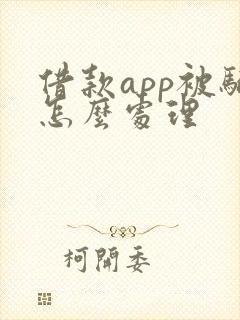 借款app被騙
怎麼處理
柯開委